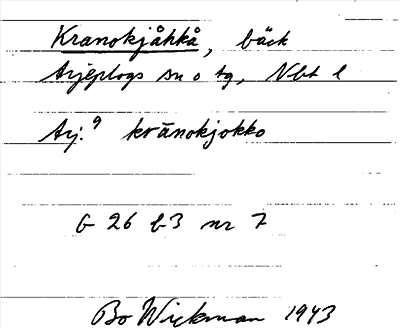 Kranokjåhkå, bäck
Arjeplogs sn o tg, Nbt l
Arj.⁹ krānokjokko
G 26 b3 nr 7
Bo Wickman 1943